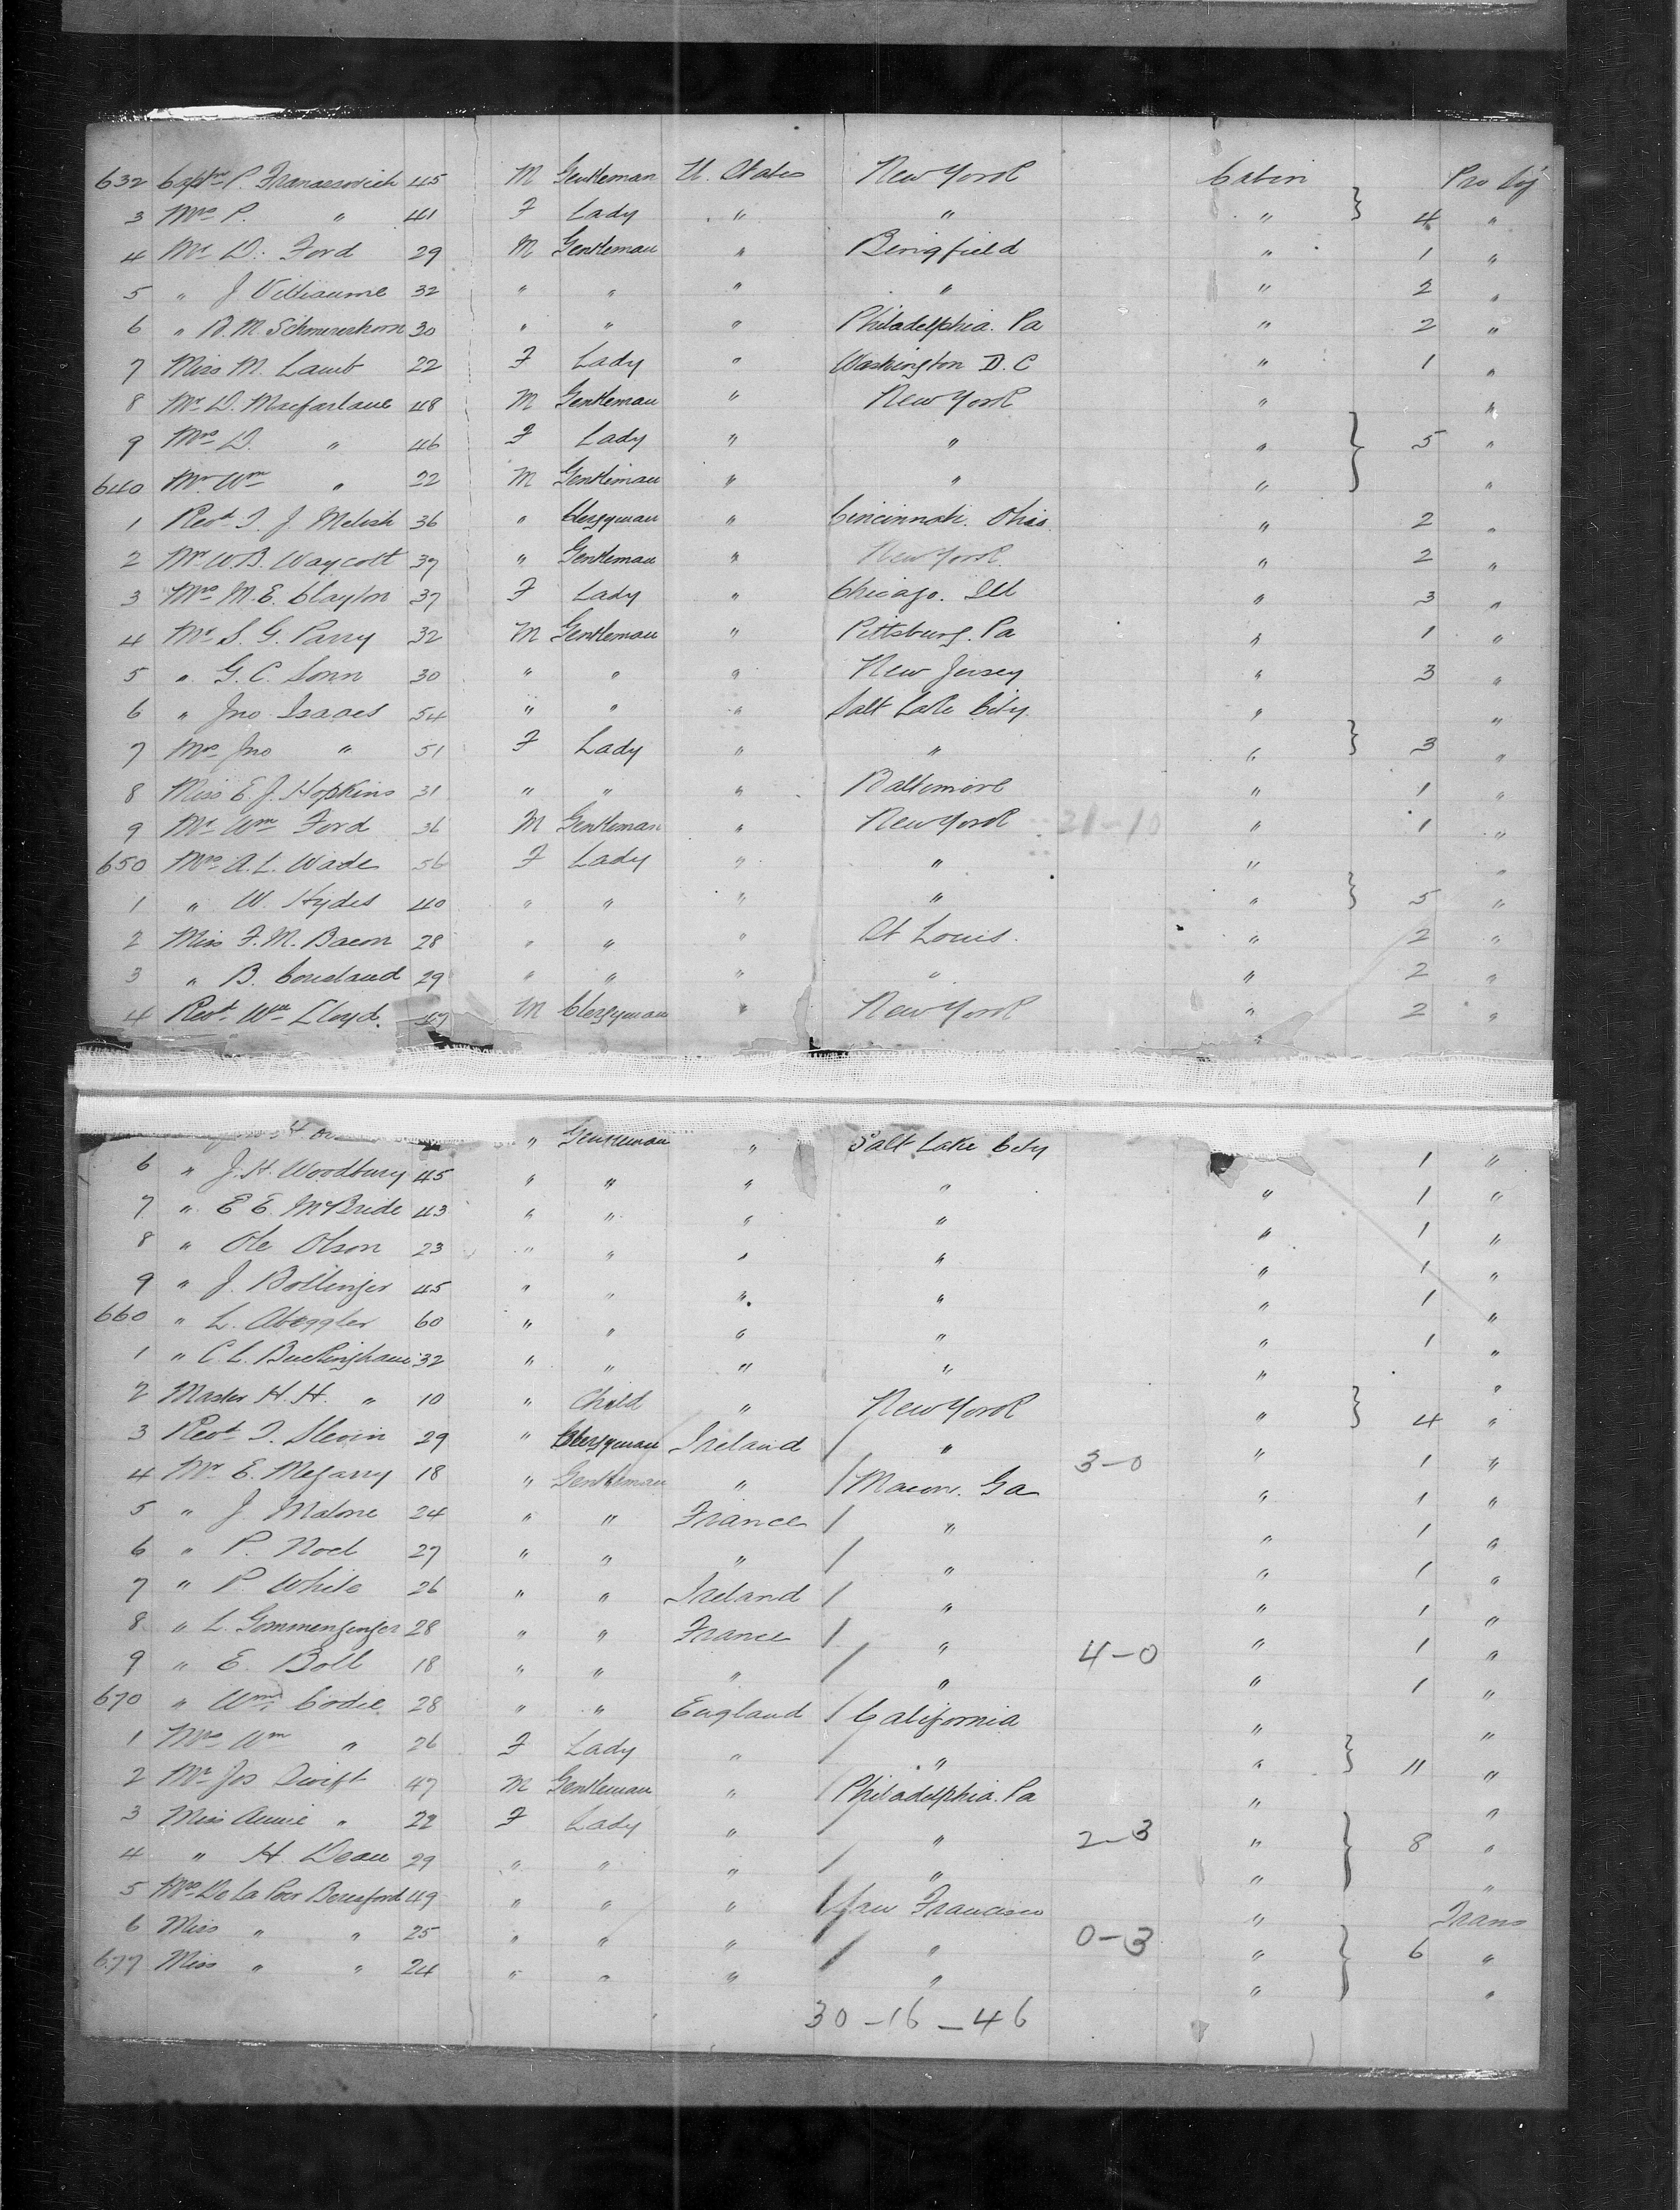 632 Captn P. Franassovich 45 M Gentleman U. States New York Cabin Pro Soj
3 Mrs P. " 41 F Lady " " " } 4 "
4 Mr D. Ford 29 M Gentleman " Beringfield " 1 "
5 " J Villiaume 32 " " " " " 2 "
6 " B. M. Schmererhorn 30 " " " Philadelphia. Pa " 2 "
7 Miss M. Lamb 22 F Lady " Washington D. C " 1 "
8 Mr D. Macfarlane 48 M Gentleman " New York " "
9 Mrs D. " 46 F Lady " " " } 5 "
640 Mr Wm " 22 M Gentleman " " " "
1 Revd T. J. Melish 36 " Clergyman " Cincinnati. Ohio. " 2 "
2 Mr W. B. Waycott 37 " Gentleman " New York. " 2 "
3 Mrs M. E. Clayton 37 F Lady " Chicago. Ill " 3 "
4 Mr S. G. Parry 32 M Gentleman " Pittsburg. Pa " 1 "
5 " G. C. Sonn 30 " " " New Jersey " 3 "
6 " Jno Isaacs 54 " " " Salt Lake City. " "
7 Mrs Jno " 51 F Lady " " " } 3 "
8 Miss E. J. Hopkins 31 " " " Baltimore " 1 "
9 Mr Wm Ford 36 M Gentleman " New York 21-10 " 1 "
650 Mrs A. L. Wade 56 F Lady " " " "
1 " W. Hydes 40 " " " " " } 5 "
2 Miss F. M. Bacon 28 " " " St Louis. " 2 "
3 " B. Cousland 29 " " " " " 2 "
4 Revd Wm Lloyd. 47 M Clergyman " New York " 2 "
" Gentleman " Salt Lake City 1 "
6 " J. H. Woodbury 45 " " " " " 1 "
7 " E E. McBride 43 " " " " " 1 "
8 " Ole Olson 23 " " " " " 1 "
9 " J. Bollinger 45 " " " " " 1 "
660 " L. Abeggler 60 " " " " " 1 "
1 " C L. Buckingham 32 " " " " " "
2 Master H. H. " 10 " Child " New York " } 4 "
3 Revd T. Slevin 29 " Clergyman Ireland / " 3-0 " 1 "
4 Mr E. Megarry 18 " Gentleman " / Macon. Ga " 1 "
5 " J. Malone 24 " " France / " " 1 "
6 " P. Noel 27 " " " / " " 1 "
7 " P. White 26 " " Ireland / " " 1 "
8 " L. Gommenginger 28 " " France / " " 1 "
9 " E. Boll 18 " " " / " 4-0 " 1 "
670 " Wm Codie 28 " " England / California " "
1 Mrs Wm " 26 F Lady " / " " } 11 "
2 Mr Jos Swift 47 M Gentleman " / Philadelphia. Pa " "
3 Miss Annie " 22 F Lady " / " 2-3 " } 8 "
4 " H. Dean 29 " " " / " " "
5 Mrs De La Poer Beresford 49 " " " / San Francisco " Trans
6 Miss " " 25 " " " / " 0-3 " } 6 "
677 Miss " " 24 " " " " " "
30-16-46